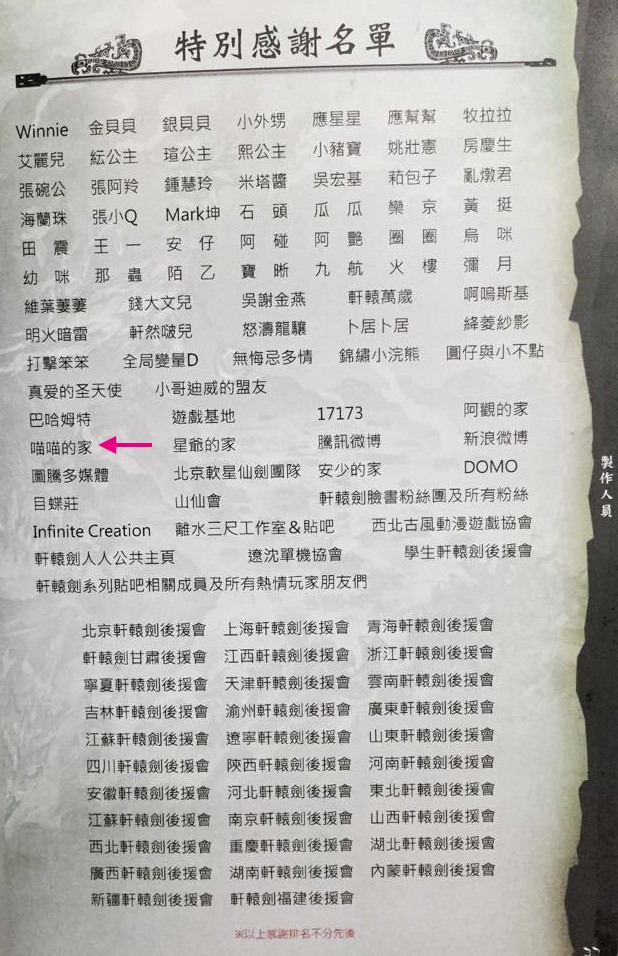 特別感謝名單
Winnie 金貝貝 銀貝貝 小外甥 應星星 應幫幫 牧拉拉
艾麗兒 紜公主 瑄公主 熙公主 小豬寶 姚壯憲 房慶生
張碗公 張阿羚 鍾慧玲 米塔醬 吳宏基 萂包子 亂燉君
海蘭珠 張小Q Mark坤 石頭 瓜瓜 欒京 黃挺
田震 王一 安仔 阿碰 阿艷 圈圈 烏咪
幼咪 那蟲 陌乙 寶晰 九航 火樓 彌月
維葉萋萋 錢大文兒 吳謝金燕 軒轅萬歲 啊嗚斯基
明火暗雷 軒然啵兒 怒濤龍驤 卜居卜居 絳菱紗影
打擊笨笨 全局變量D 無悔忌多情 錦繡小浣熊 圓仔與小不點
真爱的圣天使 小哥迪威的盟友
巴哈姆特 遊戲基地 17173 阿觀的家
喵喵的家 星爺的家 騰訊微博 新浪微博
圖騰多媒體 北京軟星仙劍團隊 安少的家 DOMO
目蝶莊 山仙會 軒轅劍臉書粉絲團及所有粉絲
Infinite Creation 離水三尺工作室&貼吧 西北古風動漫遊戲協會
軒轅劍人人公共主頁 遼沈單機協會 學生軒轅劍後援會
軒轅劍系列貼吧相關成員及所有熱情玩家朋友們
北京軒轅劍後援會 上海軒轅劍後援會 青海軒轅劍後援會
軒轅劍甘肅後援會 江西軒轅劍後援會 浙江軒轅劍後援會
寧夏軒轅劍後援會 天津軒轅劍後援會 雲南軒轅劍後援會
吉林軒轅劍後援會 渝州軒轅劍後援會 廣東軒轅劍後援會
江蘇軒轅劍後援會 遼寧軒轅劍後援會 山東軒轅劍後援會
四川軒轅劍後援會 陝西軒轅劍後援會 河南軒轅劍後援會
安徽軒轅劍後援會 河北軒轅劍後援會 東北軒轅劍後援會
江蘇軒轅劍後援會 南京軒轅劍後援會 山西軒轅劍後援會
西北軒轅劍後援會 重慶軒轅劍後援會 湖北軒轅劍後援會
廣西軒轅劍後援會 湖南軒轅劍後援會 內蒙軒轅劍後援會
新疆軒轅劍後援會 軒轅劍福建後援會
※以上感謝排名不分先後
製作人員